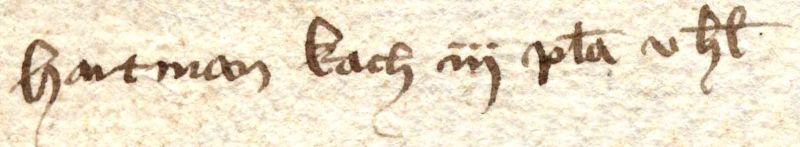 hartman kach iij pła v hł